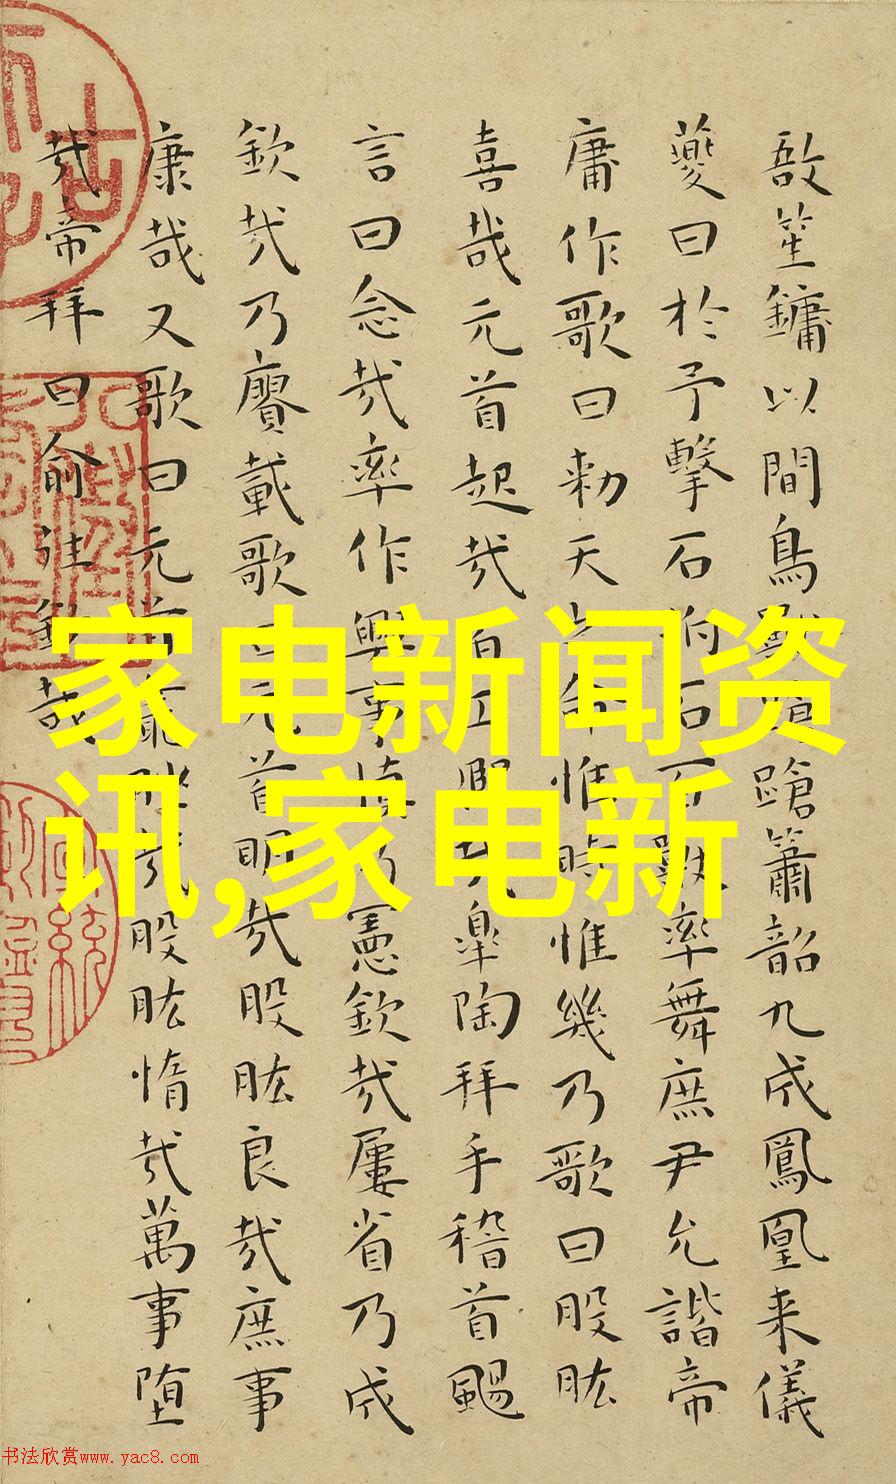 敔笙鏞以間鳥獸蹌蹌簫韶九成鳳凰来儀
夔曰於予擊石拊石百獸率舞庶尹允諧帝
庸作歌曰勑天之命惟時惟幾乃歌曰股肱
喜哉元首起哉百工熙哉皋陶拜手稽首颺
言曰念哉率作興事慎乃憲欽哉屢省乃成
欽哉乃賡載歌曰元首明哉股肱良哉庶事
康哉又歌曰元首叢脞哉股肱惰哉萬事堕
哉帝拜曰俞往欽哉
家电新闻资
讯,家电新
书法欣赏www.yac8.com